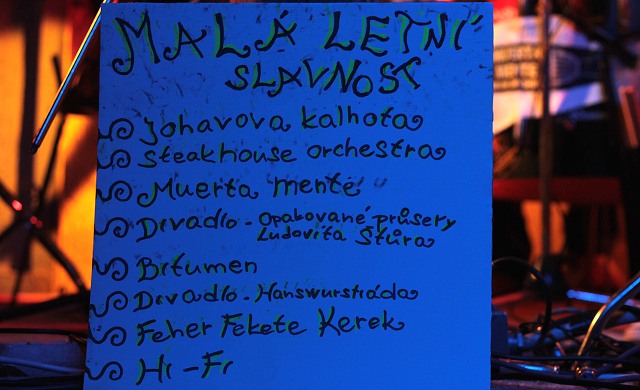 MALÁ LETNÍ
SLAVNOST
Johavova kalhota
Steakhouse orchestra
Muerta mente
Divadlo - Opakované průsery
Ludovíta Štúra
Bitumen
Divadlo - Hanswurstiáda
Feher Fekete Kerek
Hi-Fi